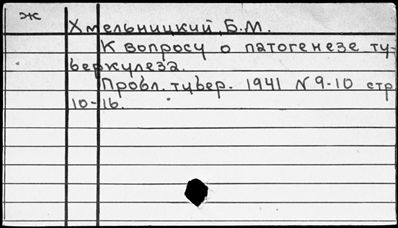 ж
Хмельницкий, Б.М.
К вопросу о патогенезе ту-
беркулеза.
Пробл. тубер. 1941 N 9-10 стр
10-16.